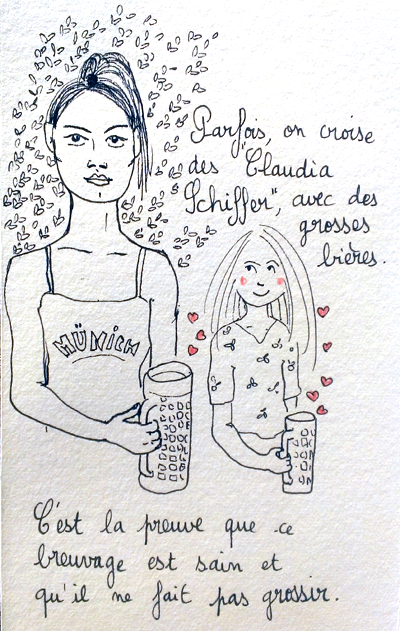 Parfois, on croise
des "Claudia
Schiffer", avec des
grosses
bières.
MÜNICH
C'est la preuve que ce
breuvage est sain et
qu'il ne fait pas grossir.